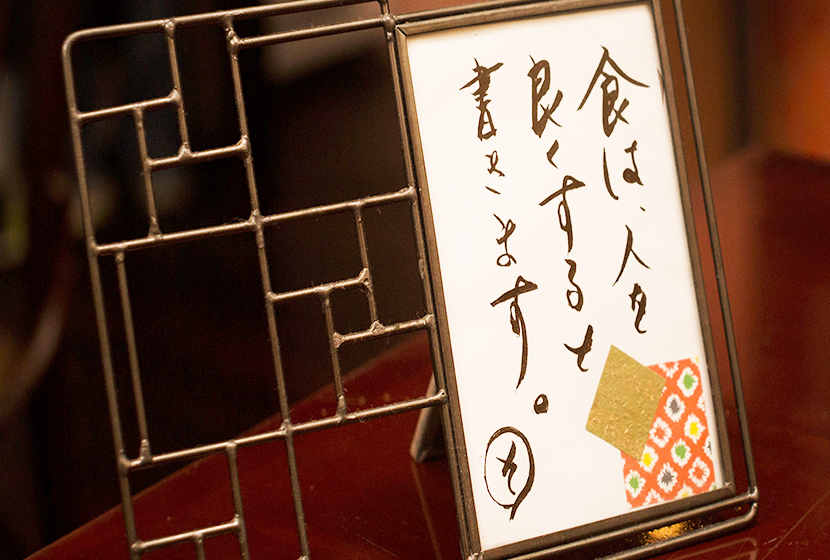 食は、人を
良くすると
書きます。
そ